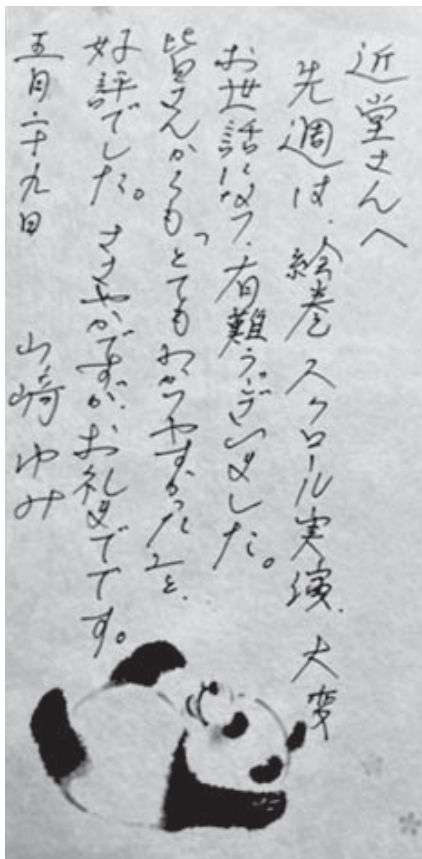 近堂さんへ
先週は、絵巻スクロール実演、大変
お世話になって、有難うございました。
皆さんからも「とてもわかりやすかった」と、
好評でした。ささやかですが、お礼までです。
五月二十九日　山﨑ゆみ